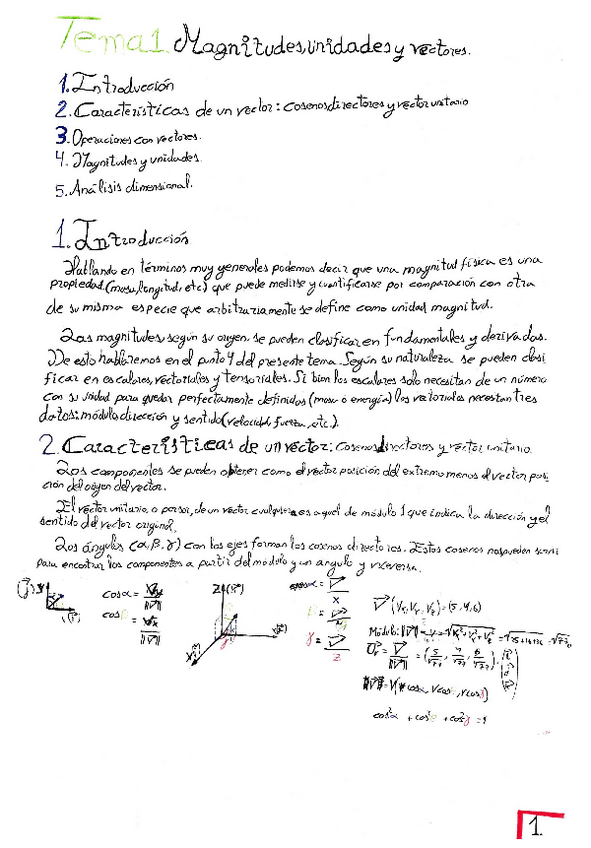 Tema 1. Magnitudes, unidades y vectores.
1. Introducción
2. Características de un vector: cosenos directores y vector unitario
3. Operaciones con vectores.
4. Magnitudes y unidades.
5. Análisis dimensional.
1. Introducción
Hablando en términos muy generales podemos decir que una magnitud física es una
propiedad (masa, longitud, etc) que puede medirse y cuantificarse por comparación con otra
de su misma especie que arbitrariamente se define como unidad magnitud.
Las magnitudes, según su origen, se pueden clasificar en fundamentales y derivadas.
De esto hablaremos en el punto 4 del presente tema. Según su naturaleza se pueden clasi
ficar en escalares, vectoriales y tensoriales. Si bien los escalares solo necesitan de un número
con su unidad para quedar perfectamente definidos (masa o energía) los vectoriales necesitan tres
datos: módulo, dirección y sentido (velocidad, fuerza, etc.).
2. Características de un vector: cosenos directores y vector unitario.
Los componentes se pueden obtener como el vector posición del extremo menos el vector posi
ción del origen del vector.
El vector unitario, o versor, de un vector cualquiera es aquel de módulo 1 que indica la dirección y el
sentido del vector original.
Los ángulos (α, β, γ) con los ejes forman los cosenos directores. Estos cosenos nos pueden servir
para encontrar los componentes a partir del módulo y un ángulo y viceversa.
cos α =
cos
V (Vx, Vy, Vz) = (5, 4, 6)
Módulo: ||V||
cos²α + cos²β + cos²γ = 1
1.